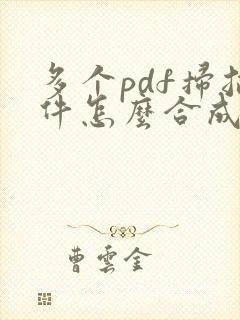 多个pdf掃描
件怎麼合成
曹雲金